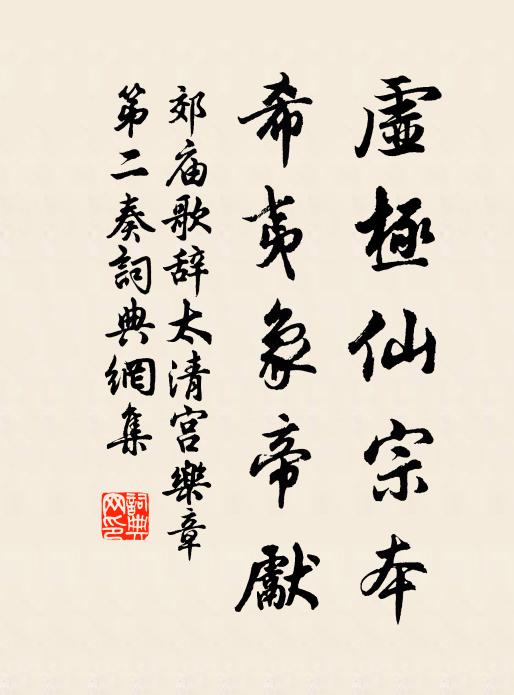 虛極仙宗本
希夷象帝獻
郊庙歌辞太清宫樂章
第二奏詞典網集
詞典网印